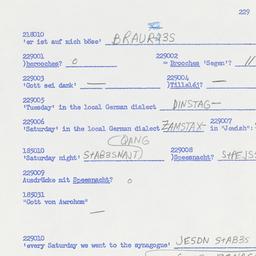 229
218010
'er ist auf mich böse' BRAUR
229001
)brooches? 0
229002
= Brooches 'Segen'? //
229003
'Gott sei dank' —
229004
)Tillelól? —
229005
'Tuesday' in the local German dialect DINSTAG—
229006
'Saturday' in the local German dialect ZAMSTAX
229007
in "Jewish":
185010
'Saturday night' StABƎSNAJT)
229008
)Spesnacht?
229009
Ausdrücke mit Spesnacht? 0
185031
"Gott von Awrohom"
—
229010
'every Saturday we went to the synagogue' JESDN StABƎS